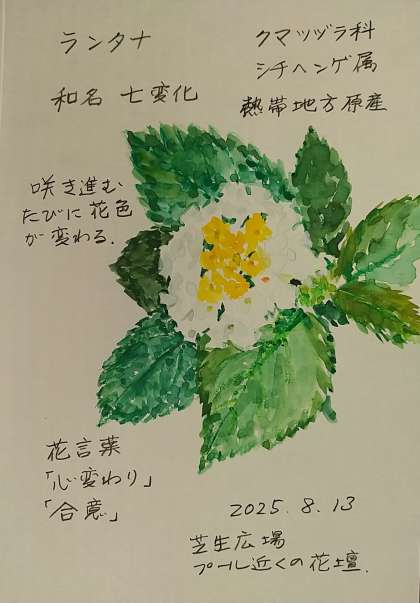 ランタナ
和名 七変化
クマツヅラ科
シチヘンゲ属
熱帯地方原産
咲き進む
たびに花色
が変わる.
花言葉
「心変わり」
「合意」
2025.8.13
芝生広場
プール近くの花壇.